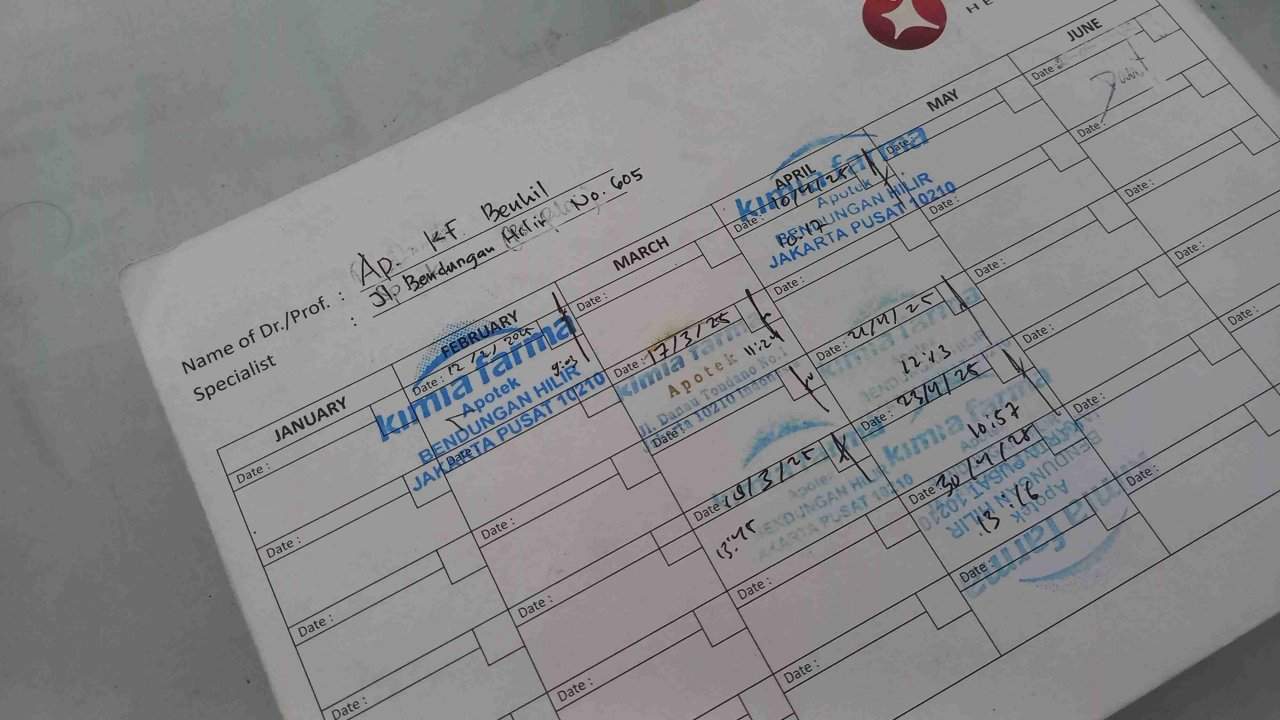 HE
Name of Dr./Prof. : Ap. KF. Benhil
Specialist : Jl. Bendungan Hilir No. 605
JANUARY
Date :
Date :
Date :
Date :
FEBRUARY
Date : 12/2/2025
9:03
kimia farma
Apotek
BENDUNGAN HILIR
JAKARTA PUSAT 10210
Date :
Date :
Date :
Date :
MARCH
Date :
Date : 17/3/25
11:24
kimia farma
Apotek
Jl. Danau Tondano No.1
Date :
Date : 19/3/25
13:45
Apotek
BENDUNGAN HILIR
JAKARTA PUSAT 10210
Date :
Date :
APRIL
Date : 10/4/25
10:17
kimia farma
Apotek
BENDUNGAN HILIR
JAKARTA PUSAT 10210
Date :
Date : 21/4/25
12:13
Date : 23/4/25
10:57
kimia farma
Date : 30/4/25
13:16
Apotek
BENDUNGAN HILIR
JAKARTA PUSAT 10210
kimia farma
Date :
MAY
Date :
Date :
Date :
Date :
Date :
Date :
JUNE
Date :
Date :
Date :
Date :
Date :